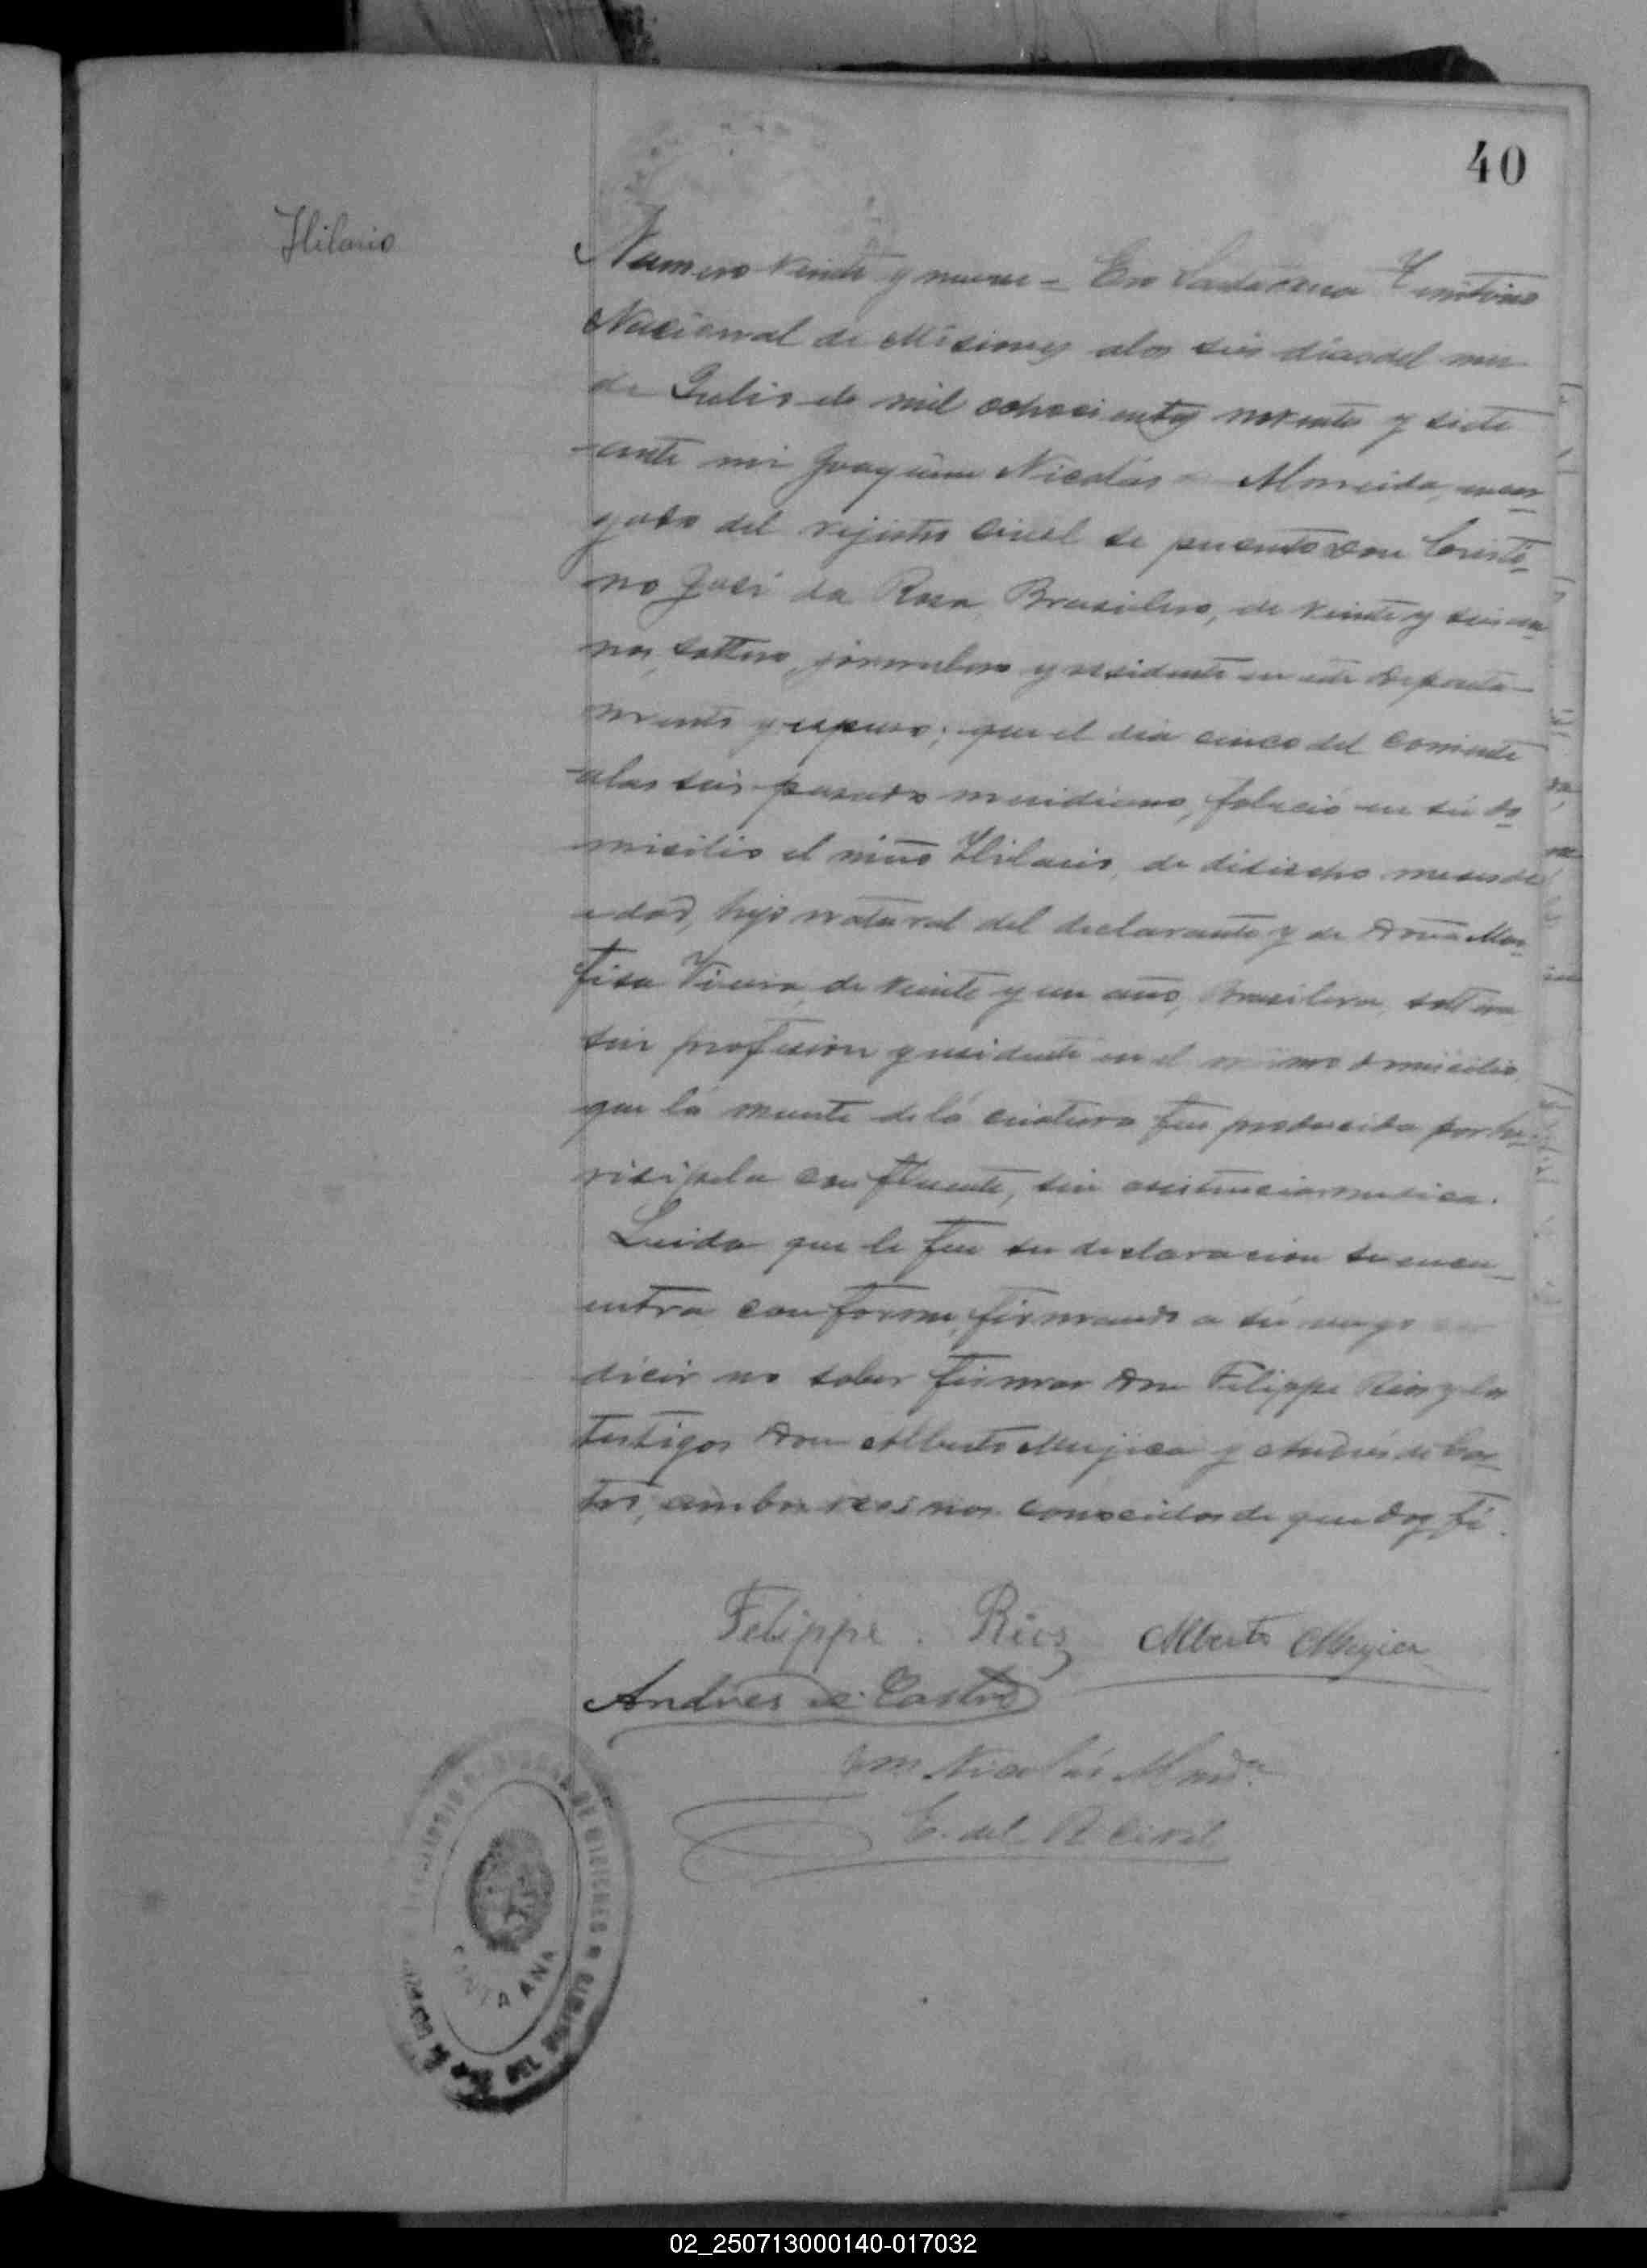 40
Hilario
Numero veinte y nueve = En Santa Ana Territorio
Nacional de Misiones a los seis dias del mes
de Julio de mil ochocientos noventa y siete
ante mi Joaquim Nicolás Almeida, encar
gado del rejistro civil se presentó Don Cristi-
no José da Rosa, Brasilero, de veinte y seis a
nos, soltero, jornalero y residente en este departa-
mento y expuso; que el dia cinco del corriente
a las seis pasado meridiano, faleció en sú do
micilio el niño Hilario, de dieiocho meses de
edad, hijo natural del declarante y de Doña Mar
fisa Vieira de veinte y un año, Brasilera, soltera
sin profesion y residente en el mismo domicilio,
que lá muerte de lá criatura fue producida por
risipela confluente, sin asistencia medica.
Leida que le fue su declaracion se encu-
entra conforme, firmando a sú ruego
dicir no saber firmar Don Filippe Rios y los
testigos Don Alberto Mujica y Andrés de Cas
tro, ambos vecinos conocidos de que doy fé.
Felippe. Rios Alberto Mujica
Andres de Castro
Jm Nicolás Almda
E. del R Civil
DE MISIONES
SANTA ANA
DEL
02_250713000140-017032